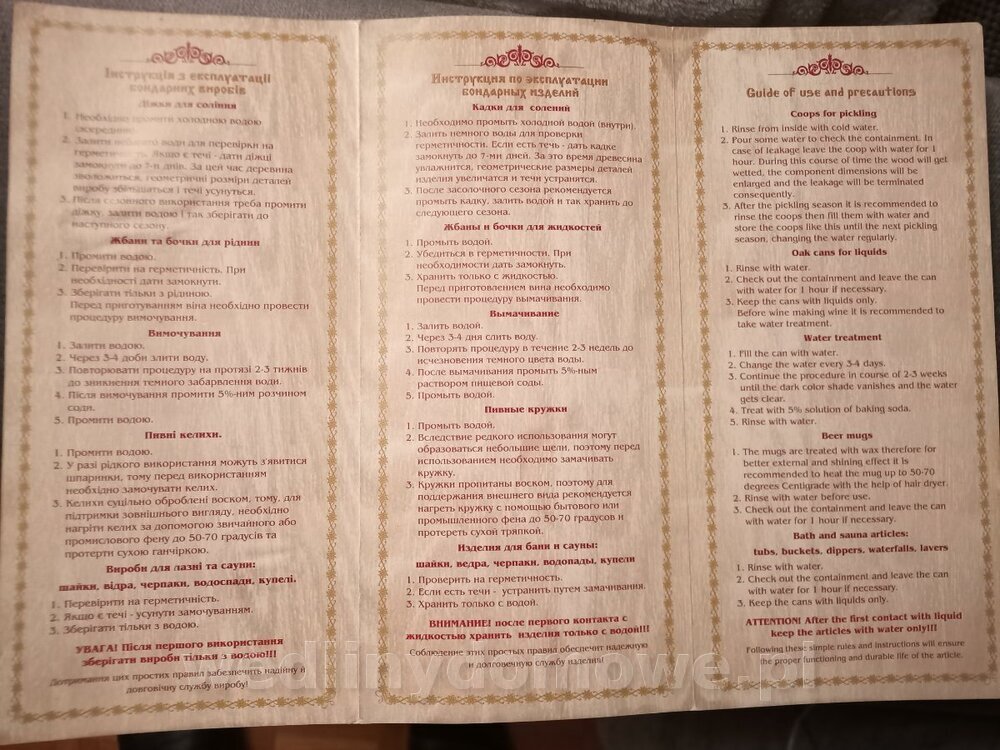 Інструкція з експлуатації
бондарних виробів
Діжки для соління
1. Необхідно промити холодною водою
(зсередини).
2. Залити немного води для перевірки на
герметичність. Якщо є течі - дати діжці
замокнути до 7-и днів. За цей час деревина
зволожиться, геометричні розміри деталей
виробу збільшаться і течі усунуться.
3. Після сезонного використання треба промити
діжку, залити водою і так зберігати до
наступного сезону.
Жбани та бочки для рідини
1. Промити водою.
2. Перевірити на герметичність. При
необхідності дати замокнути.
3. Зберігати тільки з рідиною.
Перед приготуванням віна необхідно провести
процедуру вимочування.
Вимочування
1. Залити водою.
2. Через 3-4 доби злити воду.
3. Повторювати процедуру на протязі 2-3 тижнів
до зникнення темного забарвлення води.
4. Після вимочування промити 5%-ним розчином
соди.
5. Промити водою.
Пивні келихи.
1. Промити водою.
2. У разі рідкого використання можуть з'явитися
шпаринки, тому перед використанням
необхідно замочувати келих.
3. Келихи суцільно оброблені воском, тому, для
підтримки зовнішнього вигляду, необхідно
нагріти келих за допомогою звичайного або
промислового фену до 50-70 градусів та
протерти сухою ганчіркою.
Вироби для лазні та сауни:
шайки, відра, черпаки, водоспади, купелі.
1. Перевірити на герметичність.
2. Якщо є течі - усунути замочуванням.
3. Зберігати тільки з водою.
УВАГА! Після першого використання
зберігати вироби тільки з водою!!!
Дотримання цих простих правил забезпечить надійну й
довговічну службу виробу!
Инструкция по эксплуатации
бондарных изделий
Кадки для солений
1. Необходимо промыть холодной водой (внутри).
2. Залить немного воды для проверки
герметичности. Если есть течь - дать кадке
замокнуть до 7-ми дней. За это время древесина
увлажнится, геометрические размеры деталей
изделия увеличатся и течи устранятся.
3. После засолочного сезона рекомендуется
промыть кадку, залить водой и так хранить до
следующего сезона.
Жбаны и бочки для жидкостей
1. Промыть водой.
2. Убедиться в герметичности. При
необходимости дать замокнуть.
3. Хранить только с жидкостью.
Перед приготовлением вина необходимо
провести процедуру вымачивания.
Вымачивание
1. Залить водой.
2. Через 3-4 дня слить воду.
3. Повторять процедуру в течение 2-3 недель до
исчезновения темного цвета воды.
4. После вымачивания промыть 5%-ным
раствором пищевой соды.
5. Промыть водой.
Пивные кружки
1. Промыть водой.
2. Вследствие редкого использования могут
образоваться небольшие щели, поэтому перед
использованием необходимо замачивать
кружку.
3. Кружки пропитаны воском, поэтому для
поддержания внешнего вида рекомендуется
нагреть кружку с помощью бытового или
промышленного фена до 50-70 градусов и
протереть сухой тряпкой.
Изделия для бани и сауны:
шайки, ведра, черпаки, водопады, купели
1. Проверить на герметичность.
2. Если есть течи - устранить путем замачивания.
3. Хранить только с водой.
ВНИМАНИЕ! после первого контакта с
жидкостью хранить изделия только с водой!!!
Соблюдение этих простых правил обеспечит надежную
и долговечную службу изделия!
Guide of use and precautions
Coops for pickling
1. Rinse from inside with cold water.
2. Pour some water to check the containment. In
case of leakage leave the coop with water for 1
hour. During this course of time the wood will get
wetted, the component dimensions will be
enlarged and the leakage will be terminated
consequently.
3. After the pickling season it is recommended to
rinse the coops then fill them with water and
store the coops like this until the next pickling
season, changing the water regularly.
Oak cans for liquids
1. Rinse with water.
2. Check out the containment and leave the can
with water for 1 hour if necessary.
3. Keep the cans with liquids only.
Before wine making wine it is recommended to
take water treatment.
Water treatment
1. Fill the can with water.
2. Change the water every 3-4 days.
3. Continue the procedure in course of 2-3 weeks
until the dark color shade vanishes and the water
gets clear.
4. Treat with 5% solution of baking soda.
5. Rinse with water.
Beer mugs
1. The mugs are treated with wax therefore for
better external and shining effect it is
recommended to heat the mug up to 50-70
degrees Centigrade with the help of hair dryer.
2. Rinse with water before use.
3. Check out the containment and leave the can
with water for 1 hour if necessary.
Bath and sauna articles:
tubs, buckets, dippers, waterfalls, lavers
1. Rinse with water.
2. Check out the containment and leave the can
with water for 1 hour if necessary.
3. Keep the cans with liquids only.
ATTENTION! After the first contact with liquid
keep the articles with water only!!!
Following these simple rules and instructions will ensure
the proper functioning and durable life of the article.
wedlinydomowe.pl